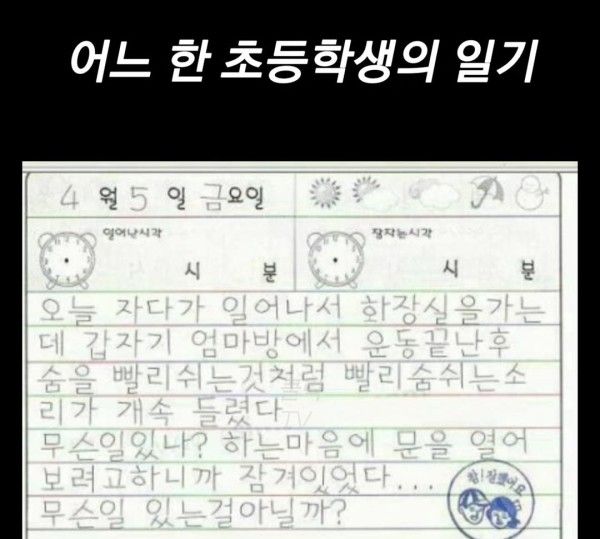 어느 한 초등학생의 일기
4 월 5 일 금요일
일어난시각
시 분
잠자는시각
시 분
오늘 자다가 일어나서 화장실을가는
데 갑자기 엄마방에서 운동끝난후
숨을 빨리쉬는것처럼 빨리숨쉬는소
리가 개속 들렸다
TV
무슨일있나? 하는마음에 문을 열어
보려고하니까 잠겨있었다...
무슨일 있는걸아닐까?
참!잘했어요